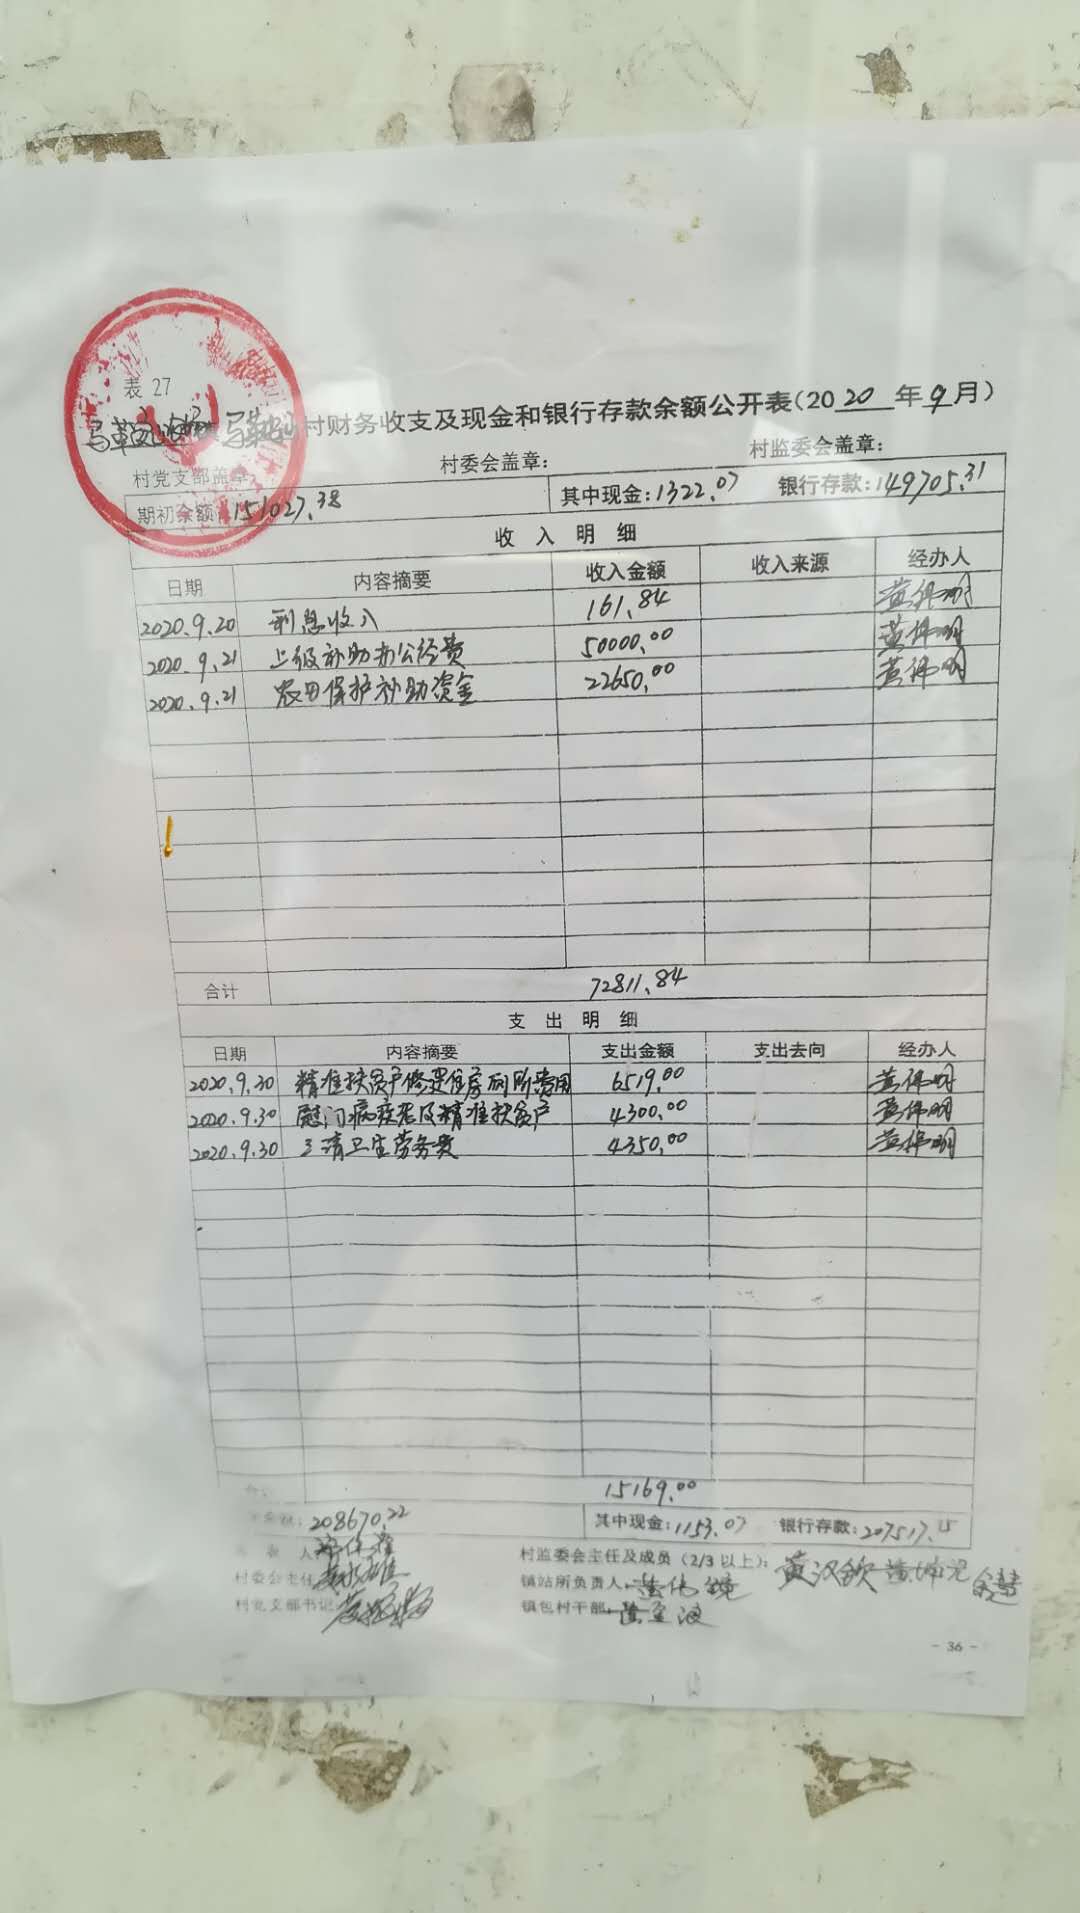 表 27
村财务收支及现金和银行存款余额公开表(2020年9月)
村党支部盖章: 村委会盖章: 村监委会盖章:
期初余额: 151027.38 其中现金:1322.07 银行存款:149705.31
收入明细
日期 内容摘要 收入金额 收入来源 经办人
2020.9.20 利息收入 161.84 黄伟明
2020.9.21 上级补助办公经费 50000.00 黄伟明
2020.9.21 农田保护补助资金 22650.00 黄伟明
合计 72811.84
支出明细
日期 内容摘要 支出金额 支出去向 经办人
2020.9.30 精准扶贫户修建住房 费用 6519.00 黄伟明
2020.9.30 慰问病疾老及精准扶贫户 4300.00 黄伟明
2020.9.30 三清卫生劳务费 4350.00 黄伟明
15169.00
208670.22 其中现金:1153.07 银行存款:207517.15
村监委会主任及成员(2/3以上): 黄汉钦
村委会主任 镇站所负责人
村党支部书记 镇包村干部
- 36 -